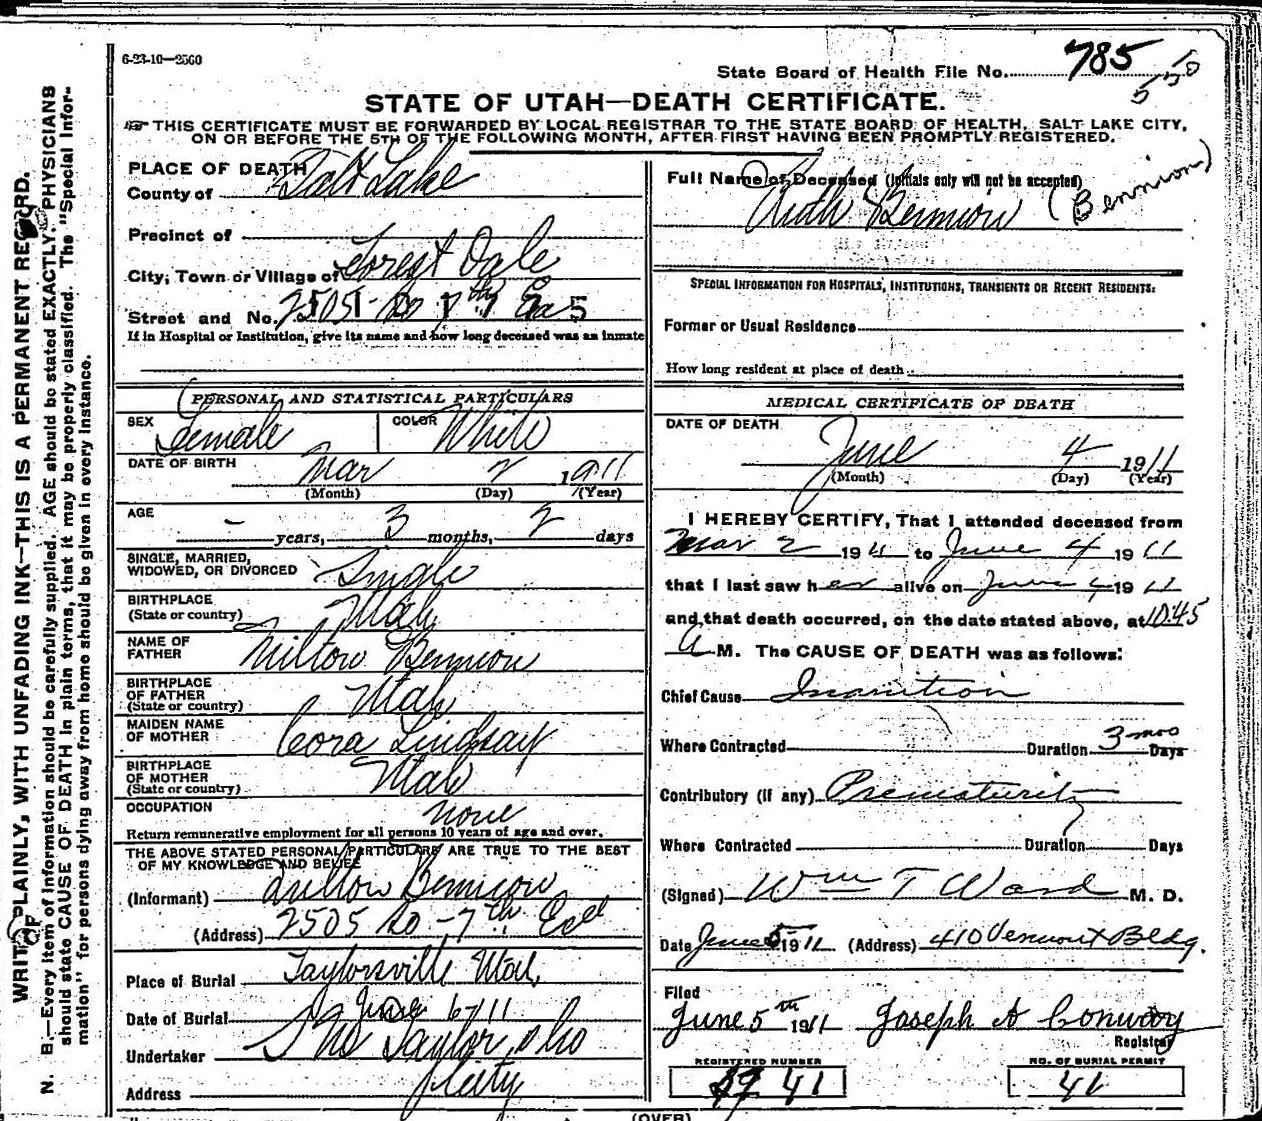 6-23-10—2560
State Board of Health File No. 785
550
STATE OF UTAH—DEATH CERTIFICATE.
THIS CERTIFICATE MUST BE FORWARDED BY LOCAL REGISTRAR TO THE STATE BOARD OF HEALTH, SALT LAKE CITY,
ON OR BEFORE THE 5TH OF THE FOLLOWING MONTH, AFTER FIRST HAVING BEEN PROMPTLY REGISTERED.
PLACE OF DEATH
County of Salt Lake
Precinct of
City, Town or Village of Forest Dale
Street and No. 2505 So 7th Ea
If in Hospital or Institution, give its name and how long deceased was an inmate
PERSONAL AND STATISTICAL PARTICULARS
SEX Female COLOR White
DATE OF BIRTH Mar 2 1911
(Month) (Day) (Year)
AGE
- years, 3 months, 2 days
SINGLE, MARRIED,
WIDOWED, OR DIVORCED Single
BIRTHPLACE
(State or country) Utah
NAME OF
FATHER Milton Bennion
BIRTHPLACE
OF FATHER
(State or country) Utah
MAIDEN NAME
OF MOTHER Cora Lindsay
BIRTHPLACE
OF MOTHER
(State or country) Utah
OCCUPATION none
Return remunerative employment for all persons 10 years of age and over.
THE ABOVE STATED PERSONAL PARTICULARS ARE TRUE TO THE BEST
OF MY KNOWLEDGE AND BELIEF
(Informant) Milton Bennion
(Address) 2505 So - 7th East
Place of Burial Taylorsville Utah
Date of Burial June 6 - 11
Undertaker S M Taylor & Co
Address City
Full Name of Deceased (Initials only will not be accepted)
Ruth Bennion (Bennion)
SPECIAL INFORMATION FOR HOSPITALS, INSTITUTIONS, TRANSIENTS OR RECENT RESIDENTS:
Former or Usual Residence
How long resident at place of death
MEDICAL CERTIFICATE OF DEATH
DATE OF DEATH
June 4 1911
(Month) (Day) (Year)
I HEREBY CERTIFY, That I attended deceased from
Mar 2 1911 to June 4 1911
that I last saw her alive on June 4 1911
and that death occurred, on the date stated above, at 10.45
A M. The CAUSE OF DEATH was as follows:
Chief Cause Inanition
Where Contracted Duration 3 mos Days
Contributory (if any) Prematurity
Where Contracted Duration Days
(Signed) Wm T Ward M. D.
Date June 5 1911 (Address) 410 Vermont Bldg.
Filed
June 5th 1911 Joseph A Conway
Registrar
REGISTERED NUMBER NO. OF BURIAL PERMIT
41 41
(OVER)
WRITE PLAINLY, WITH UNFADING INK—THIS IS A PERMANENT RECORD.
N. B.—Every item of information should be carefully supplied. AGE should be stated EXACTLY. PHYSICIANS
should state CAUSE OF DEATH in plain terms, that it may be properly classified. The "Special Infor-
mation" for persons dying away from home should be given in every instance.